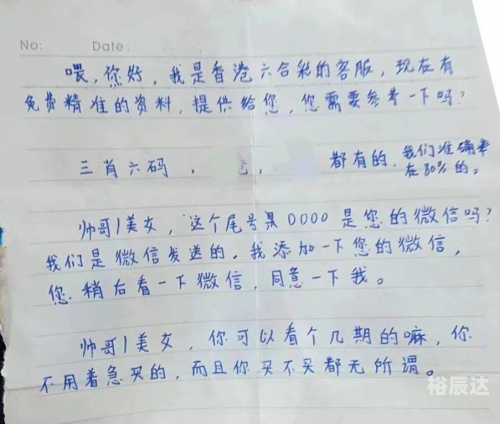 No: Date:
喂,你好,我是香港六合彩的客服,现在有
免费精准的资料,提供给您,您需要参考一下吗?
三肖六码, , 都有的,我们准确率
在80%的。
帅哥/美女,这个尾号是0000是您的微信吗?
我们是微信发送的。我添加一下您的微信,
您稍后看一下微信,同意一下我。
帅哥/美女,你可以看个几期的嘛,你
不用着急买的,而且你买不买都无所谓。
裕辰达